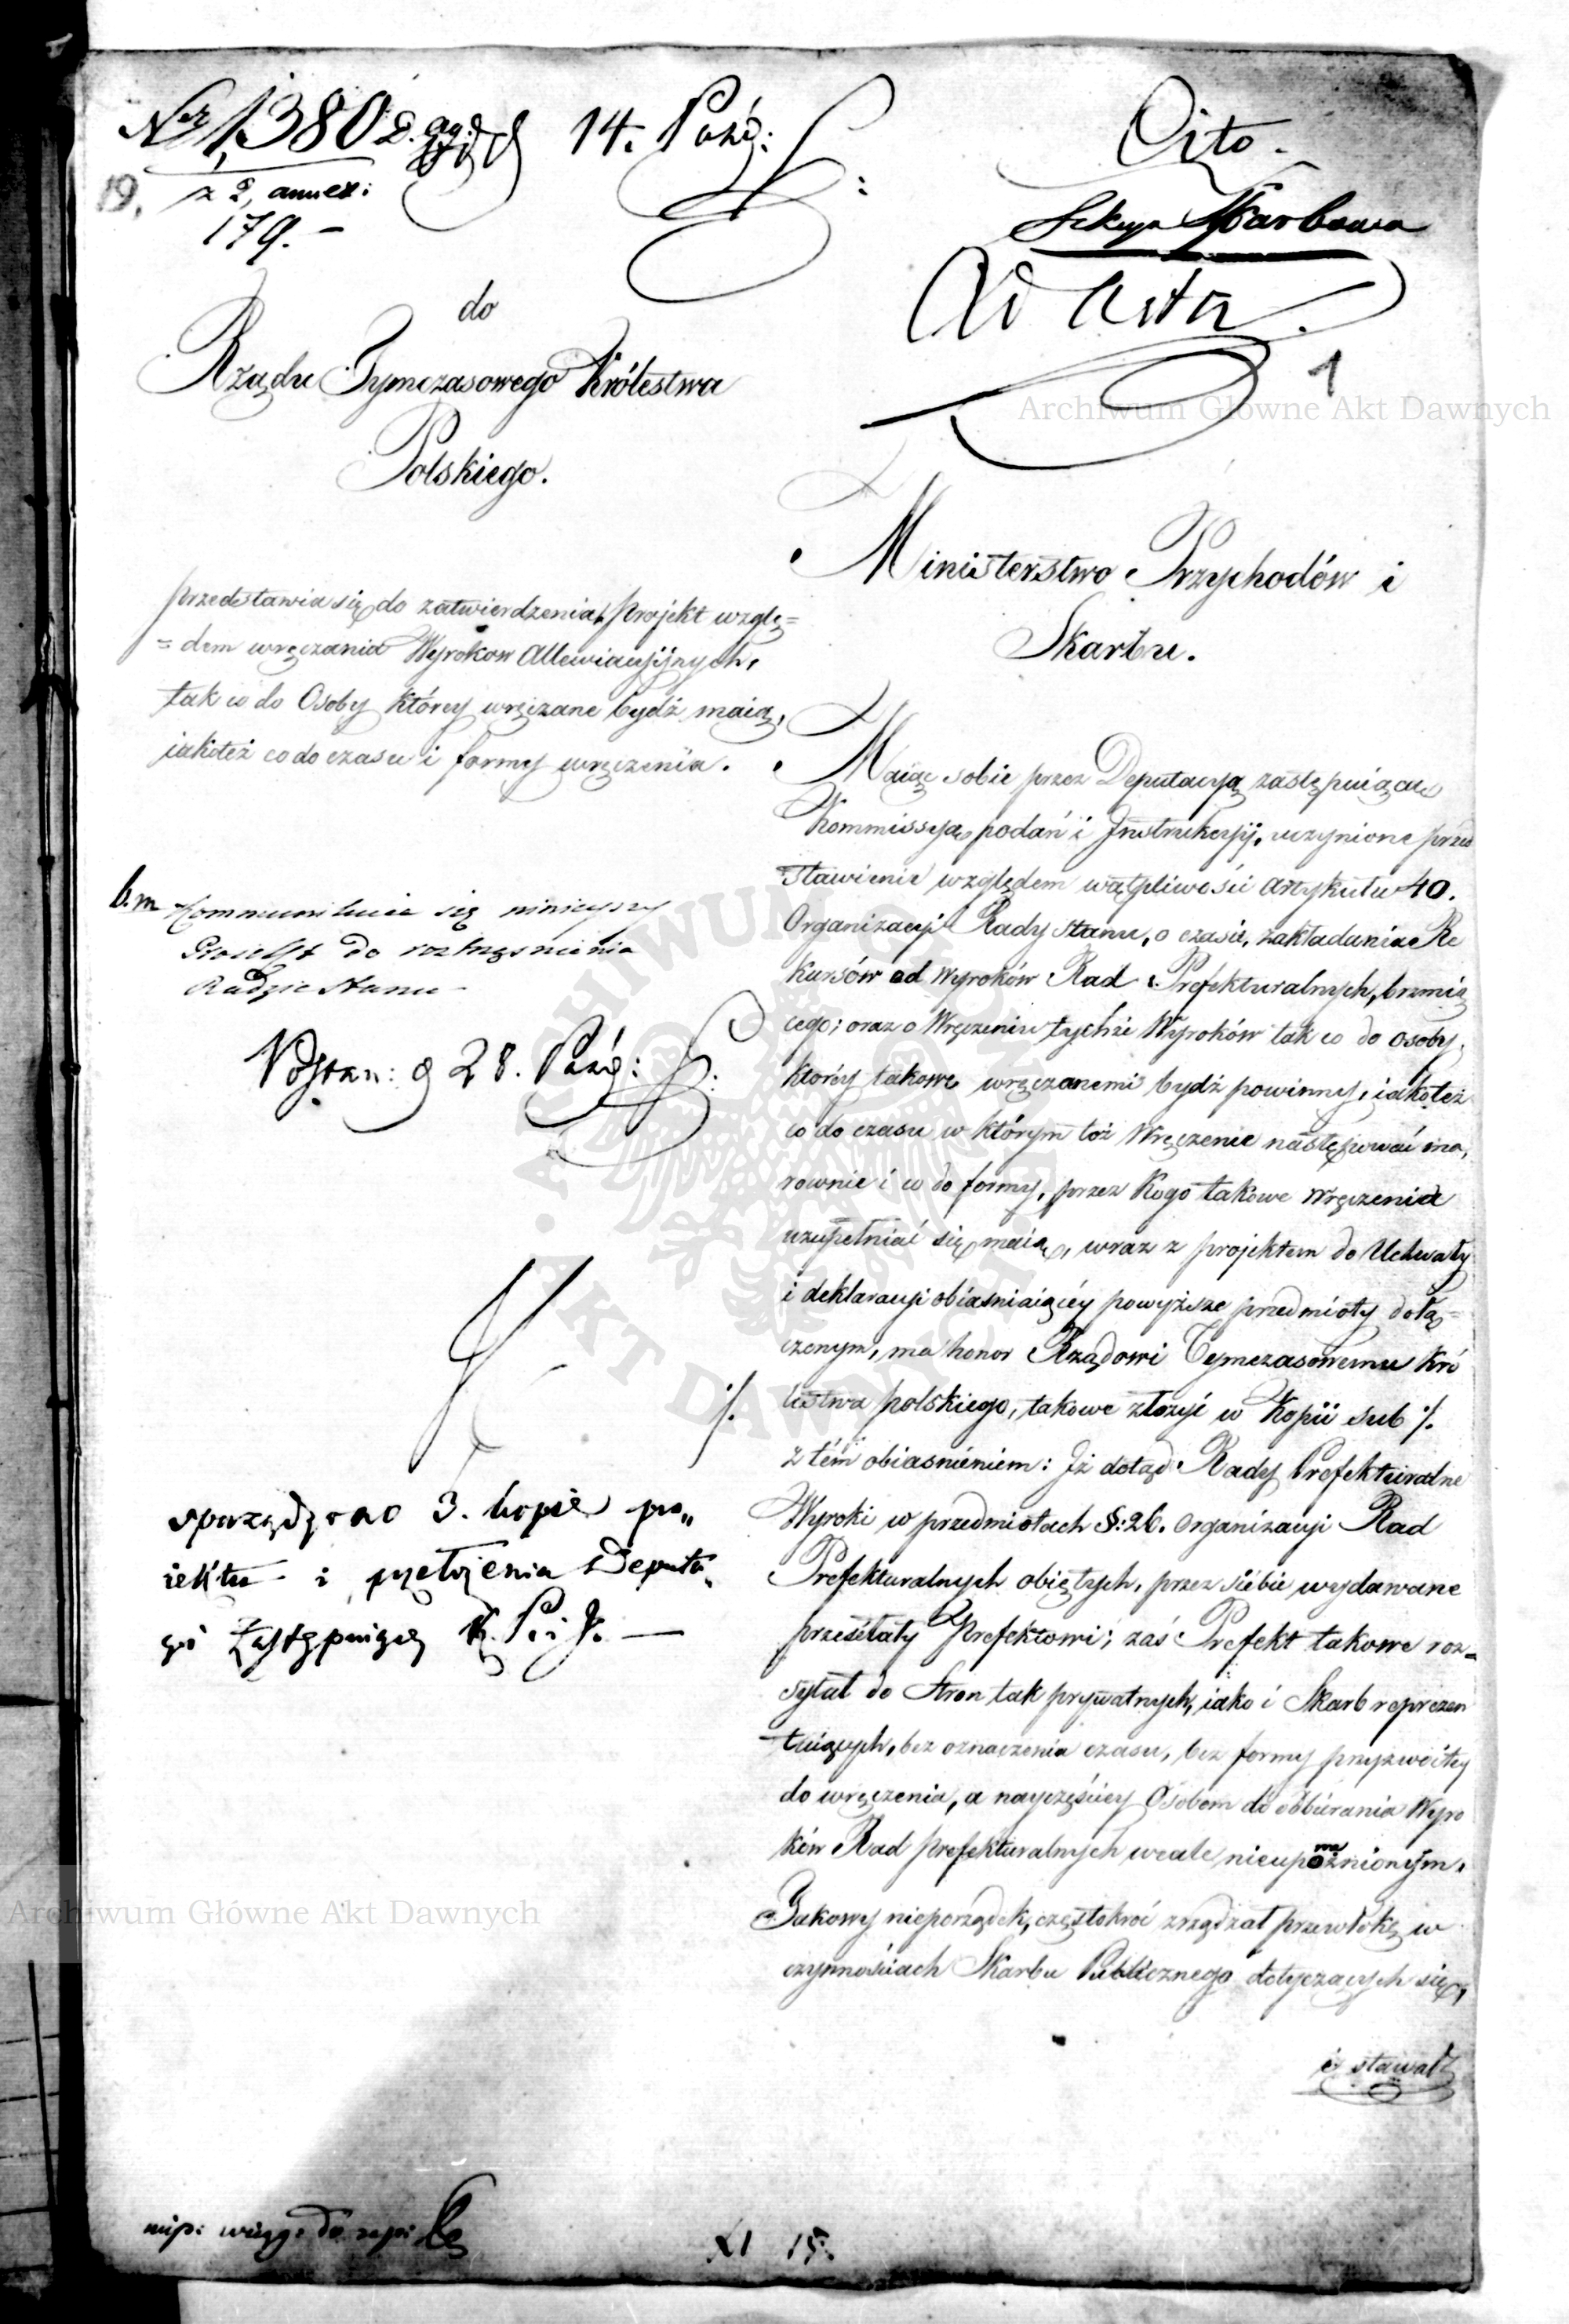 Nr 1,380 14. Paźd:
z 2, annex:
19,
179.-
Cito.
Sekcya Skarbowa
Ad Acta.
1
do
Rządu Tymczasowego Królestwa
Polskiego.
przedstawia się do zatwierdzenia projekt wzglę=
=dem wręczania Wyrokow Allewiacyijnych,
tak co do Osoby którey wręczane bydź maią,
iakoteż co do czasu i formy wręczenia.
b.m Kommunikuie się ninieyszy
Proiekt do roztrząśnienia
Radzie Stanu
Postan: d 28. Paźd:
·/.
sporządzono 3. kopie pro„
iektu i przełożenia Deputa„
cyi Zastępuiącey K. P. i J. —
Ministerstwo Przychodów i
Skarbu.
Maiąc sobie przez Deputacyą zastępuiącą
Kommissyą podań i Instrukcyij, uczynione przed
stawienie względem wątpliwości Artykułu 40.
Organizacyi Rady Stanu, o czasie, zakładania Re
kursów od Wyroków Rad Prefekturalnych, brzmią
cego; oraz o Wręczeniu tychże Wyroków tak co do osoby,
ktorey takowe wręczanemi bydź powinny, iakoteż
co do czasu w którym toż Wręczenie następować ma,
rownie i co do formy, przez Kogo takowe Wręczenia
uzupełniać się maią, wraz z projektem do Uchwały
i deklaracyi obiaśniaiącéy powyższe przedmioty dołą=
czonym, ma honor Rządowi Tymczasowemu Kró
lestwa polskiego, takowe złożyć w Kopii sub ·/.
z tém obiasnieniem: Iż dotąd Rady Prefekturalne
Wyroki w przedmiotach §: 26. Organizacyi Rad
Prefekturalnych obiętych, przez siebie wydawane
przesełały Prefektowi; zaś Prefekt takowe roz=
syłał do Stron tak prywatnych, iako i Skarb reprezen
tuiących, bez oznaczenia czasu, bez formy przyzwoitey
do wręczenia, a nayczęściey Osobom do odbierania Wyro
ków Rad prefekturalnych wcale nieupoważnionym.
Jakowy nieporządek, częstokroć zrządzał przewłokę w
czynnościach Skarbu Publicznego dotyczących się,
i stawał
XI 15.
Archiwum Główne Akt Dawnych
Archiwum Główne Akt Dawnych
ARCHIWUM GŁÓWNE AKT DAWNYCH